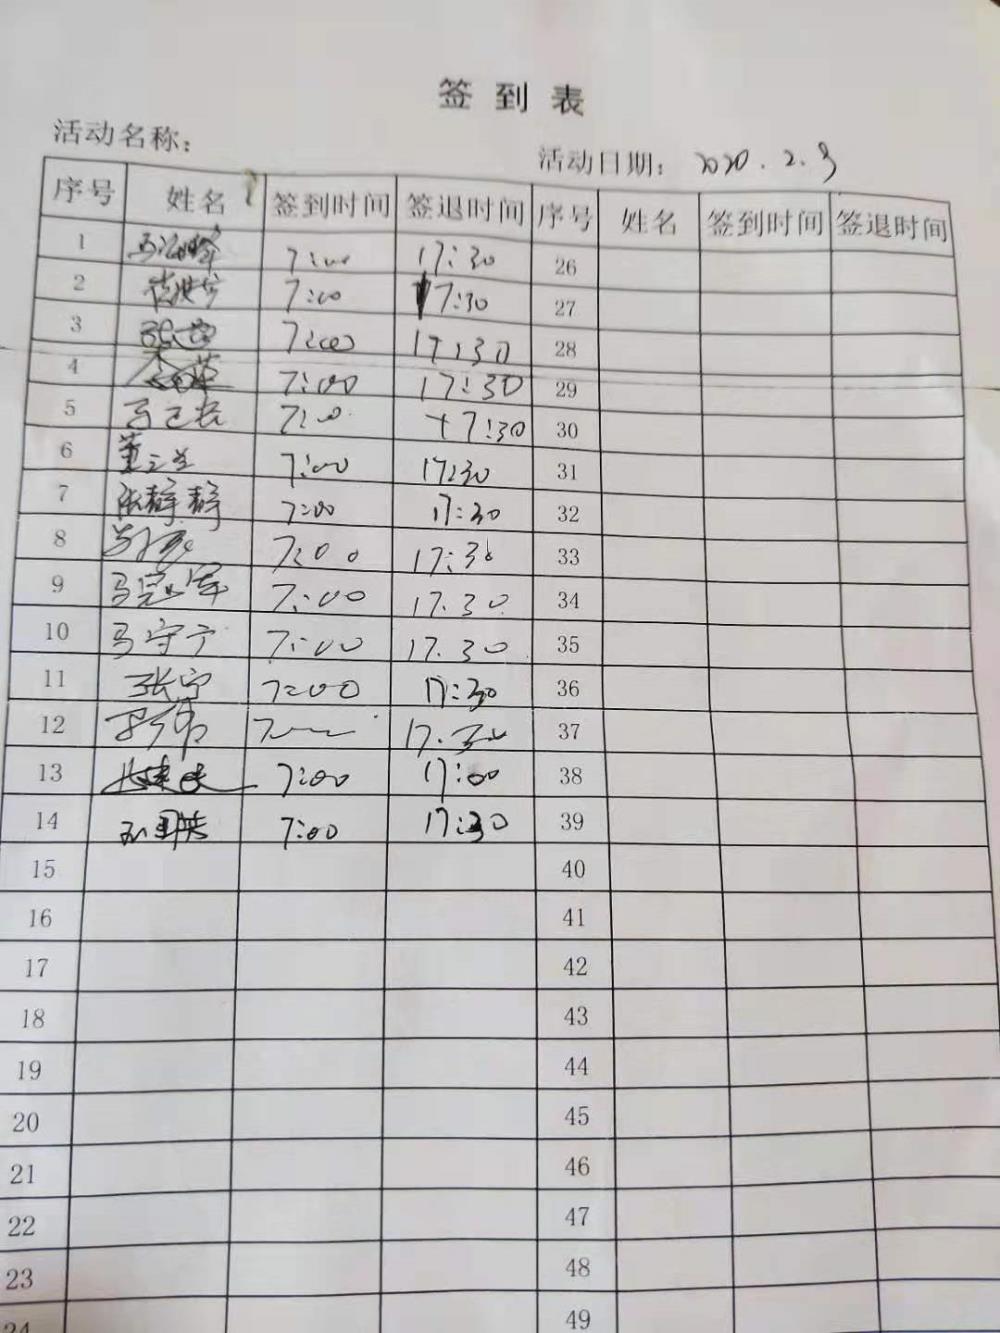 签到表
活动名称:
活动日期: 2020.2.9
序号 姓名 签到时间 签退时间 序号 姓名 签到时间 签退时间
1 7:00 17:30 26
2 7:00 17:30 27
3 7:00 17:30 28
4 7:00 17:30 29
5 7:00 17:30 30
6 董兰兰 7:00 17:30 31
7 张静静 7:00 17:30 32
8 7:00 17:30 33
9 马冠军 7:00 17.30 34
10 马守宁 7:00 17.30 35
11 张宁 7:00 17:30 36
12 17.30 37
13 7:00 17:00 38
14 7:00 17:30 39
15 40
16 41
17 42
18 43
19 44
20 45
21 46
22 47
23 48
24 49